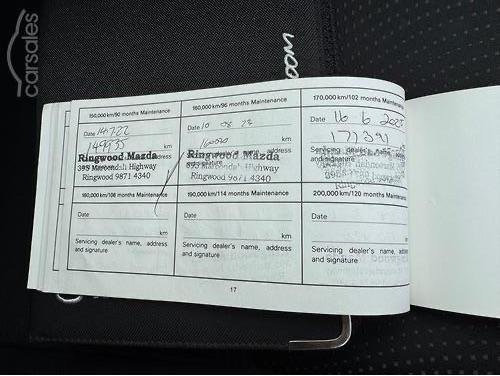 carsales
150,000 km/90 months Maintenance
Date 14.7.22
149935 km
Ringwood Mazda
address
Maroondah Highway
Ringwood 9871 4340
160,000 km/96 months Maintenance
Date 10 08 23
km
Ringwood Mazda
Highway
Ringwood 9871 4340
170,000 km/102 months Maintenance
Date 16 6 2025
171391
Servicing dealer's name,
and signature
180,000 km/108 months Maintenance
Date
km
Servicing dealer's name, address
and signature
190,000 km/114 months Maintenance
Date
km
Servicing dealer's name, address
and signature
200,000 km/120 months Maintenance
Date
km
Servicing dealer's name, address
and signature
17